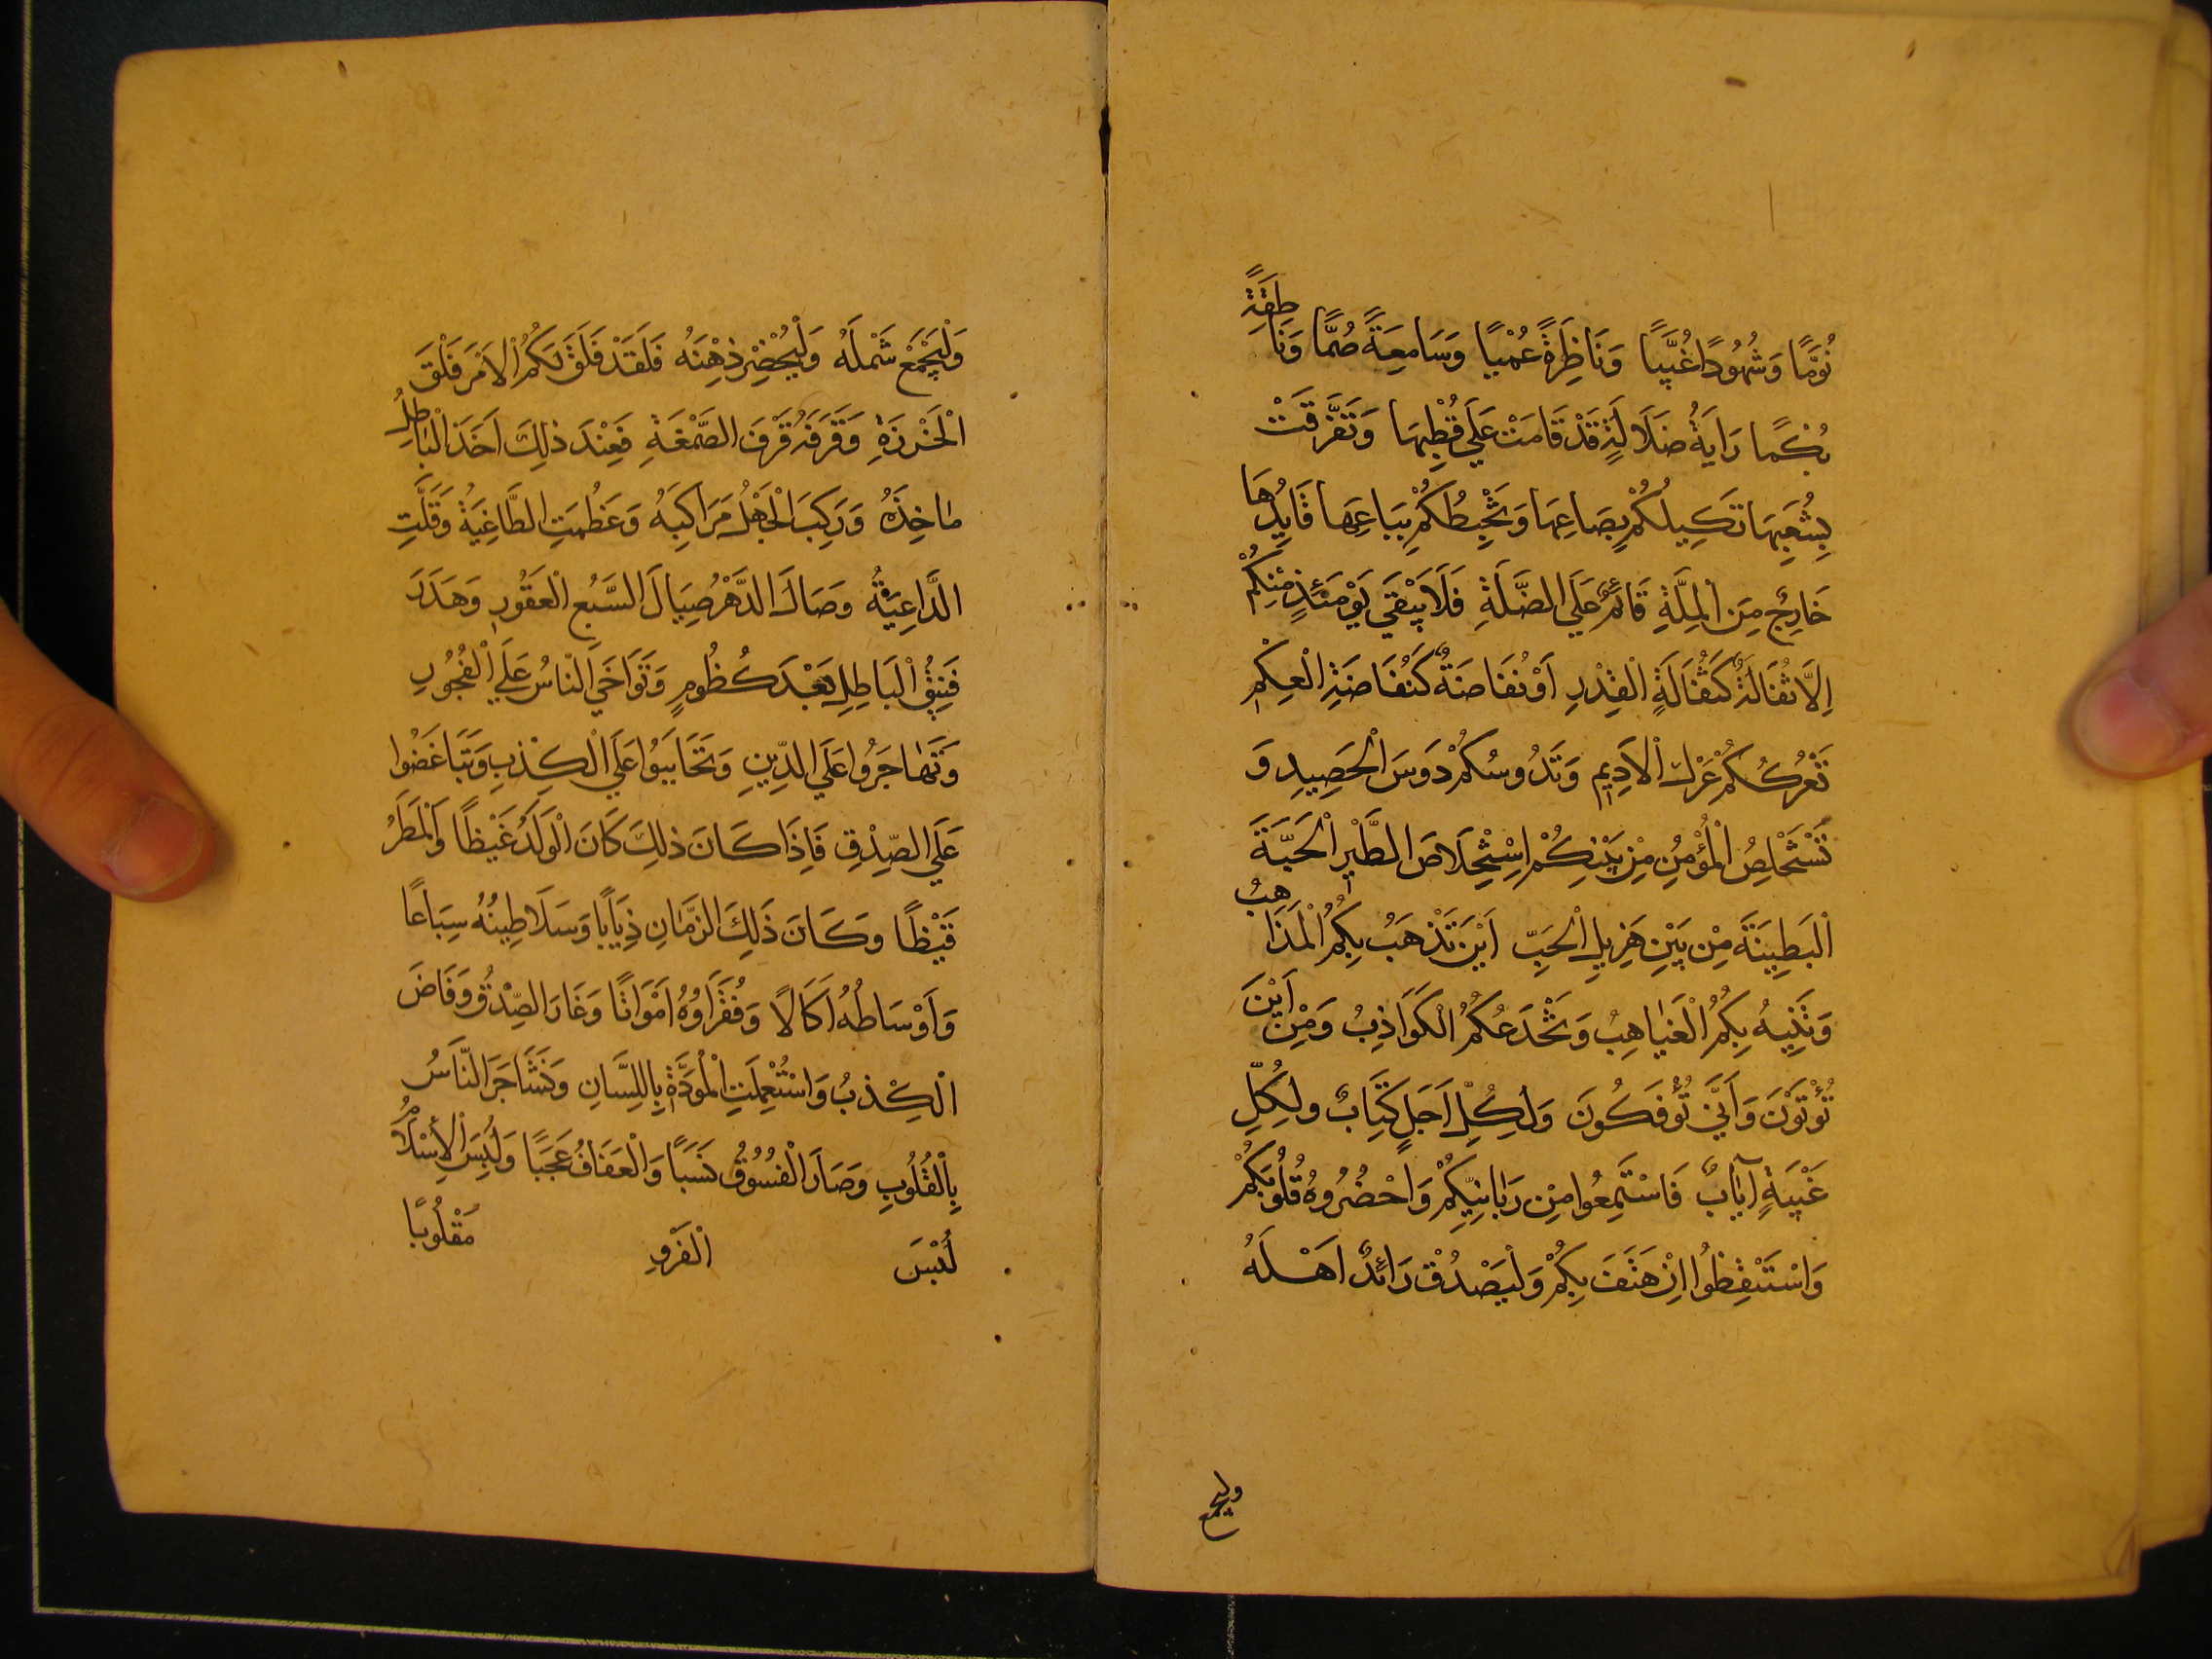 نُوَّمًا وَشُهُودًا غُيَّبًا وَنَاظِرَةً عُمْيًا وَسَامِعَةً صُمًّا وَنَاطِقَةً
بُكْمًا رَايَةُ ضَلَالَةٍ قَدْ قَامَتْ عَلَي قُطْبِهَا وَتَفَرَّقَتْ
بِشُعَبِهَا تَكِيلُكُمْ بِصَاعِهَا وَتَخْبِطُكُمْ بِبَاعِهَا قَايِدُهَا
خَارِجٌ مِنَ الْمِلَّةِ قَائِمٌ عَلَي الضَّلَّةِ فَلَا يَبْقَي يَوْمَئِذٍ مِنْكُمْ
اِلَّا ثُفَالَةٌ كَثُفَالَةِ الْقِدْرِ اَوْ نُفَاضَةٌ كَنُفَاضَةِ الْعِكْمِ
تَعْرُكُكُمْ عَرْكَ الْاَدِيمِ وَتَدُوسُكُمْ دَوسَ الْحَصِيدِ وَ
تَسْتَخْلِصُ الْمُؤْمِنَ مِنْ بَيْنِكُمْ اِسْتِخْلَاصَ الطَّيْرِ الْحَبَّةَ
الْبَطِينَةَ مِنْ بَيْنِ هَزِيلِ الْحَبِّ اَيْنَ تَذْهَبُ بِكُمُ الْمَذَاهِبُ
وَتَتِيهُ بِكُمُ الْغَيَاهِبُ وَتَخْدَعُكُمُ الْكَوَاذِبُ وَمِنْ اَيْنَ
تُؤْتَوْنَ وَاَنَّي تُؤْفَكُونَ وَلِكُلِّ اَجَلٍ كِتَابٌ ولِكُلِّ
غَيْبَةٍ اِيَابٌ فَاسْتَمِعُوا مِنْ رَبَّانِيِّكُمْ وَاحْضُرُوهُ قُلُوبَكُمْ
وَاسْتَيْقِظُوا اِنْ هَتَفَ بِكُمْ وَلْيَصْدُقْ رَائِدٌ اَهْلَهُ
وليجمع
وَلْيَجْمَعْ شَمْلَهُ وَلْيُحْضِرْ ذِهْنَهُ فَلَقَدْ فَلَقَ لَكُمُ الْاَمْرَ فَلْقَ
الْخَرَزَةِ وَقَرَفَهُ قَرْفَ الصَّمْغَةِ فَعِنْدَ ذلِكَ اَخَذَ الْبَاطِلُ
مَاخِذَهُ وَرَكِبَ الْجَهْلُ مَرَاكِبَهُ وَعَظُمَتِ الطَّاغِيَةُ وَقَلَّتِ
الدَّاعِيَةُ وَصَالَ الدَّهْرُ صِيَالَ السَّبُعِ الْعَقُورِ وَهَدَرَ
فَنِيقُ الْبَاطِلِ بَعْدَ كُظُومٍ وَتَوَاخَي النَاسُ عَلَي الْفُجُورِ
وَتَهَاجَرُوا عَلَي الدِّينِ وَتَحَابَبُوا عَلَي الْكِذْبِ وَتَبَاغَضُوا
عَلَي الصِّدْقِ فَاِذَا كَانَ ذلِكَ كَانَ الْوَلَدُ غَيْظًا وَالْمَطَرُ
قَيْظًا وَكَانَ ذَلِكَ الزَمَانِ ذِيَابًا وَسَلَاطِينُهُ سِبَاعًا
وَاَوْسَاطُهُ اَكَالًا وَفُقَرَاوُهُ اَمْوَاتًا وَغَارَ الصِّدْقُ وَفَاضَ
الْكِذْبُ وَاسْتُعْمِلَتِ الْمُوَدَّةُ بِاللِّسَانِ وَتَشَاجَرَ النَّاسُ
بِالْقُلُوبِ وَصَارَ الْفُسُوقُ نَسَبًا وَالْعَفَافُ عَجَبًا وَلُبِسَ الْاِسْلَامُ
لُبْسَ الْفَرْوِ مَقْلُوبًا